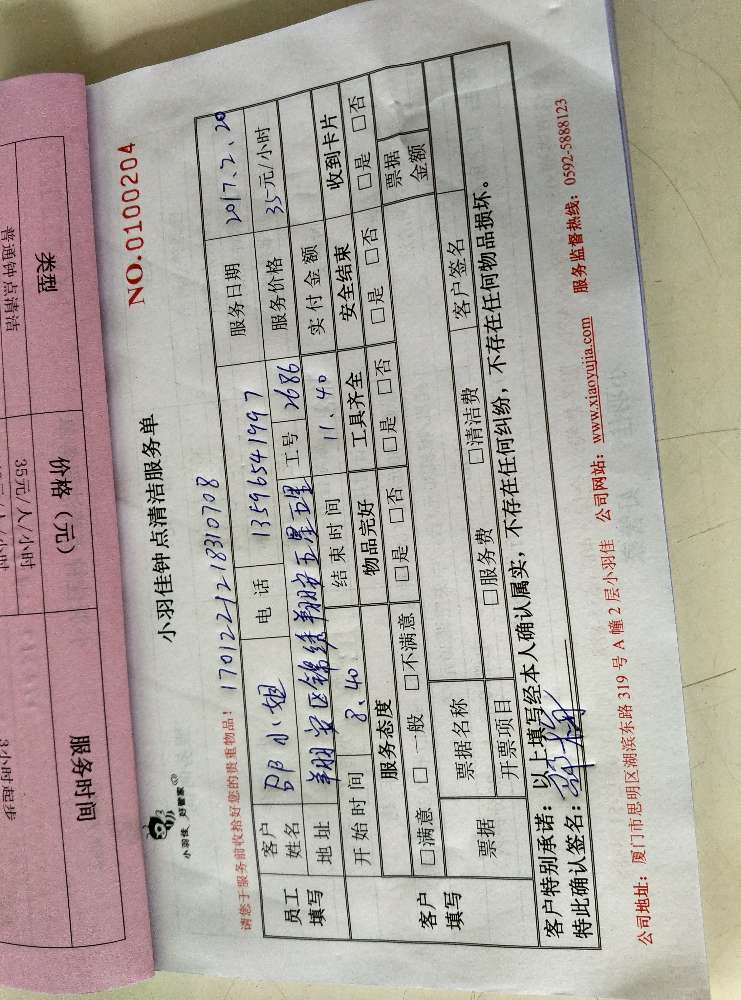 类型
价格（元）
服务时间
普通钟点清洁
35元/人/小时
3小时起步
小羽佳 好管家
小羽佳钟点清洁服务单
NO.0100204
请您于服务前收拾好您的贵重物品！ 1701221218310708
员工填写
客户姓名
小姐
电话
13596541997
服务日期
2017.2.20
地址
翔安区锦绣翔安五星里
工号
2686
服务价格
35元/小时
开始时间
8.40
结束时间
11.40
实付金额
客户填写
服务态度
物品完好
工具齐全
安全结束
收到卡片
□满意 □一般 □不满意
□是 □否
□是 □否
□是 □否
□是 □否
票据
票据名称
票据金额
开票项目
□服务费 □清洁费
客户签名
客户特别承诺：以上填写经本人确认属实，不存在任何纠纷，不存在任何物品损坏。
特此确认签名：
公司地址：厦门市思明区湖滨东路 319 号 A 幢 2 层小羽佳 公司网站：www.xiaoyujia.com 服务监督热线：0592-5888123